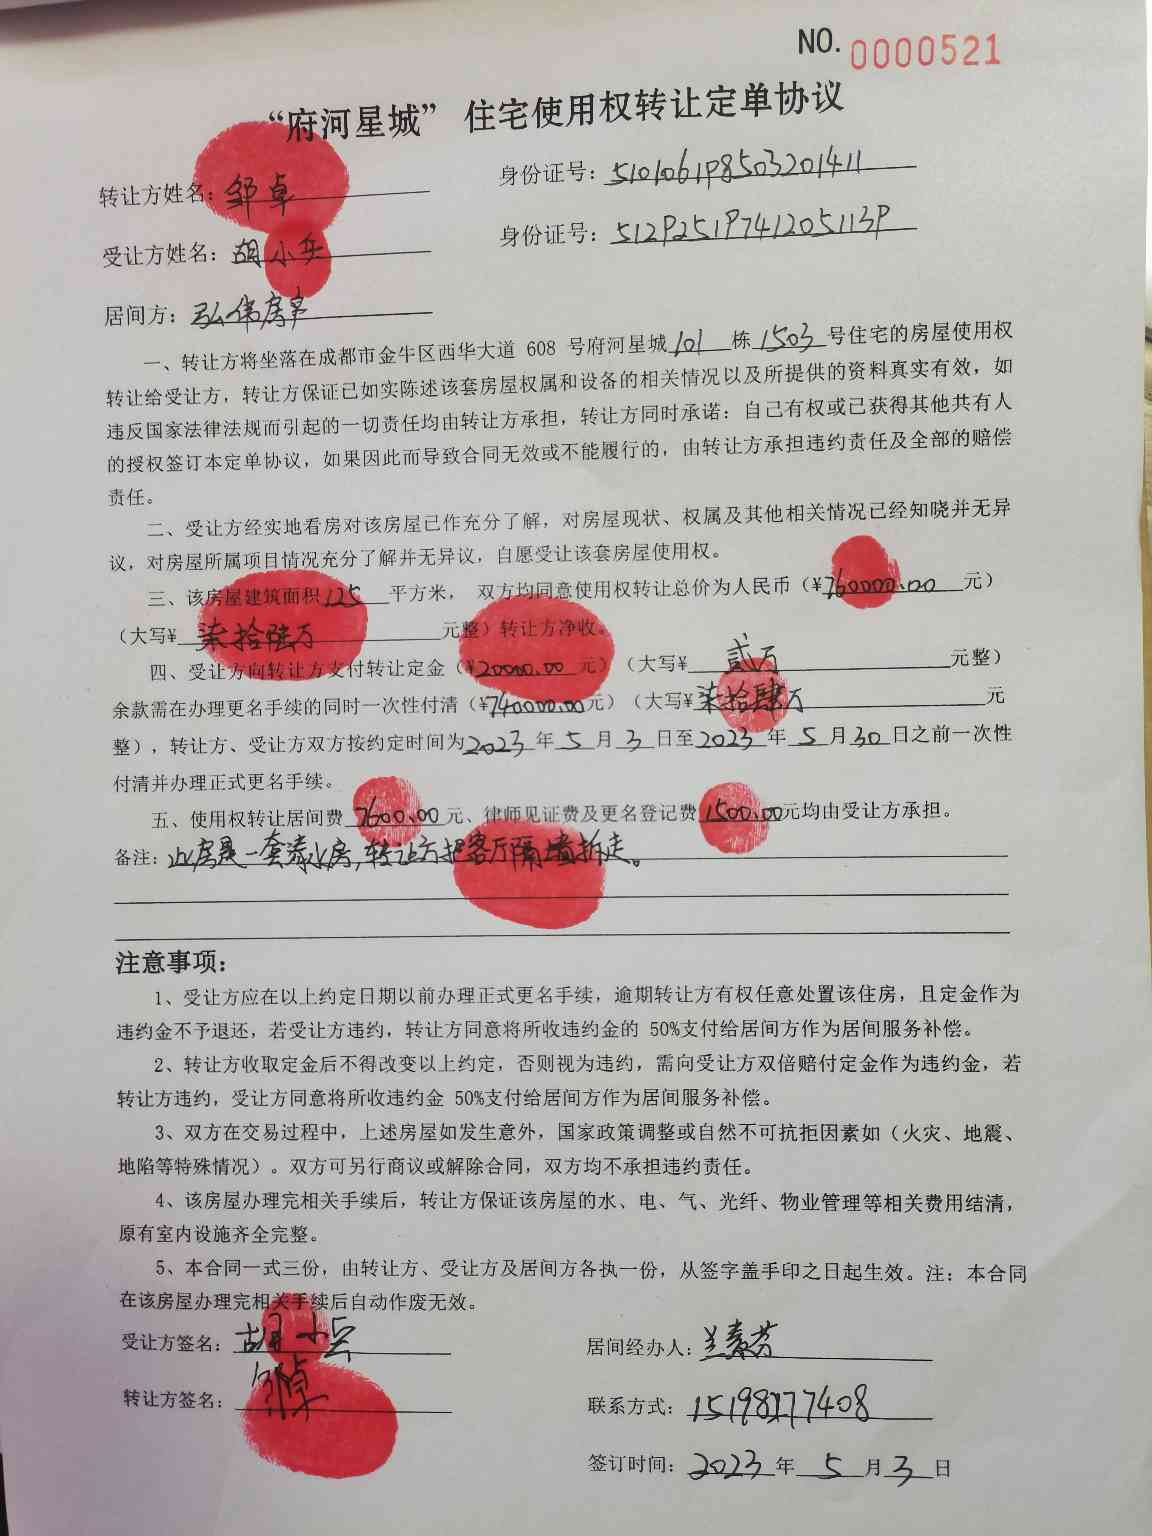 NO. 0000521
“府河星城”住宅使用权转让定单协议
转让方姓名：邹卓 身份证号：510106198503201411
受让方姓名：胡小兵 身份证号：512925197412051139
居间方：弘伟房产
一、转让方将坐落在成都市金牛区西华大道 608 号府河星城101栋1503号住宅的房屋使用权
转让给受让方，转让方保证已如实陈述该套房屋权属和设备的相关情况以及所提供的资料真实有效，如
违反国家法律法规而引起的一切责任均由转让方承担，转让方同时承诺：自己有权或已获得其他共有人
的授权签订本定单协议，如果因此而导致合同无效或不能履行的，由转让方承担违约责任及全部的赔偿
责任。
二、受让方经实地看房对该房屋已作充分了解，对房屋现状、权属及其他相关情况已经知晓并无异
议，对房屋所属项目情况充分了解并无异议，自愿受让该套房屋使用权。
三、该房屋建筑面积125平方米， 双方均同意使用权转让总价为人民币（¥760000.00元）
（大写¥柒拾陆万元整）转让方净收。
四、受让方向转让方支付转让定金（¥20000.00元）（大写¥贰万元整）
余款需在办理更名手续的同时一次性付清（¥740000.00元）（大写¥柒拾肆万元
整），转让方、受让方双方按约定时间为2023年5月3日至2023年5月30日之前一次性
付清并办理正式更名手续。
五、使用权转让居间费7600.00元、律师见证费及更名登记费1500.00元均由受让方承担。
备注：此房是一套清水房，转让方把客厅隔墙拆走。
注意事项：
1、受让方应在以上约定日期以前办理正式更名手续，逾期转让方有权任意处置该住房，且定金作为
违约金不予退还，若受让方违约，转让方同意将所收违约金的 50%支付给居间方作为居间服务补偿。
2、转让方收取定金后不得改变以上约定，否则视为违约，需向受让方双倍赔付定金作为违约金，若
转让方违约，受让方同意将所收违约金 50%支付给居间方作为居间服务补偿。
3、双方在交易过程中，上述房屋如发生意外，国家政策调整或自然不可抗拒因素如（火灾、地震、
地陷等特殊情况）。双方可另行商议或解除合同，双方均不承担违约责任。
4、该房屋办理完相关手续后，转让方保证该房屋的水、电、气、光纤、物业管理等相关费用结清，
原有室内设施齐全完整。
5、本合同一式三份，由转让方、受让方及居间方各执一份，从签字盖手印之日起生效。注：本合同
在该房屋办理完相关手续后自动作废无效。
受让方签名：胡小兵 居间经办人：兰素芬
转让方签名：邹卓 联系方式：15198277408
签订时间：2023年5月3日